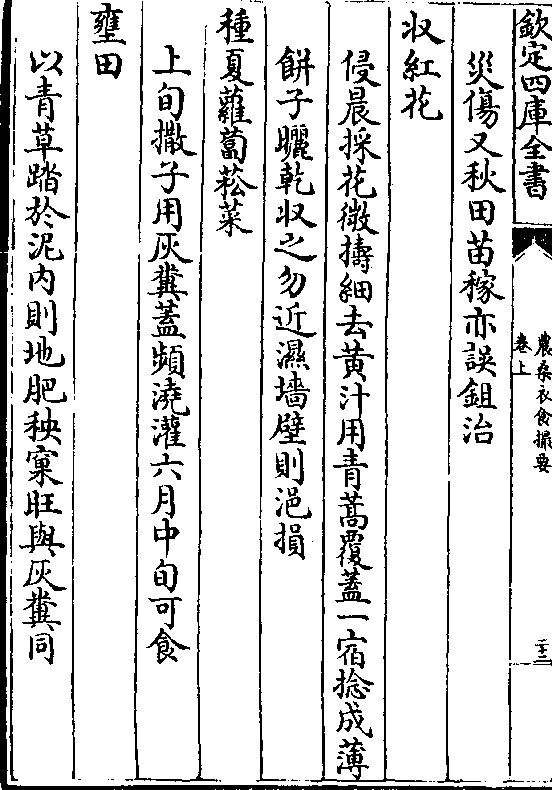 欽定四庫全書
農桑衣食撮要
卷上
二十二
災傷又秋田苗稼亦誤鉏治
收紅花
侵晨採花微擣細去黄汁用青蒿覆蓋一宿捻成薄
餅子曬乾收之勿近濕墻壁則浥損
種夏蘿蔔菘菜
上旬撒子用灰糞蓋頻澆灌六月中旬可食
壅田
以青草踏於泥内則地肥秧窠旺與灰糞同